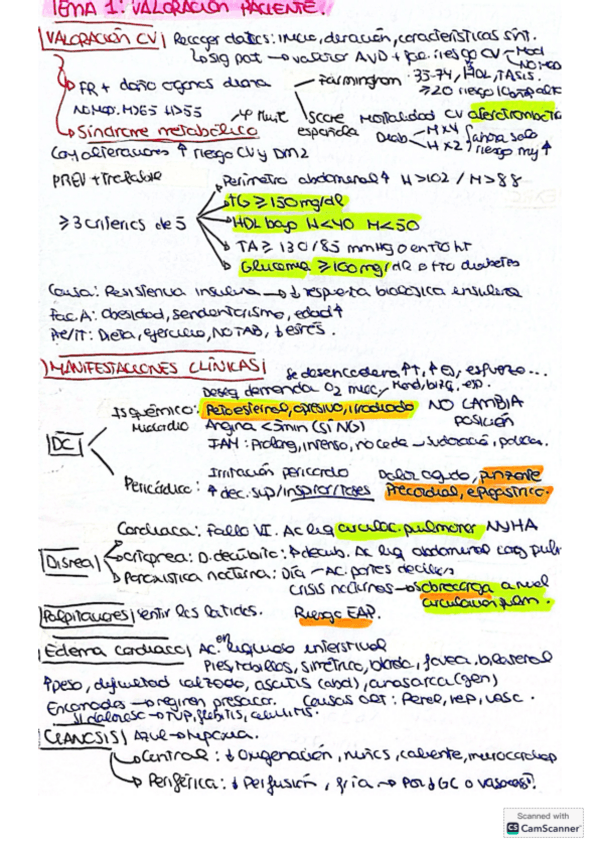 TEMA 1: VALORACIÓN PACIENTE.
VALORACIÓN CV Recoger datos: inicio, duración, características sínt.
Sig pat → valorar AVD + riesgo CV Mod
NO MOD
FR + daño órganos diana Farmingham 35-74, HDL, TASis.
≥20 riesgo
NO MOD. H>65 H>55
Score Mortalidad CV aterotrombótica
Síndrome metabólico española Diab M x4 ahora solo
H x2 riesgo muy ↑
Con alteraciones ↑ riesgo CV y DM2
PREV + tratable
Perímetro abdominal ↑ H>102 / M>88
TG ≥ 150 mg/dl
≥ 3 criterios de 5 HDL bajo H<40 M<50
TA ≥ 130/85 mmHg o en tto ht
Glucemia ≥100 mg/dl o tto diabetes
Causa: Resistencia insulina → ↓ respuesta biológica insulina
Fac. A: Obesidad, sendentarismo, edad ↑
Pre/IT: Dieta, ejercicio, NO TAB, ↓ estrés.
MANIFESTACIONES CLÍNICAS Se desencadena ↑T, ↑ esfuerzo...
Deseq demanda O2 musc, Mand, braz, esp.
Isquémico: Retroesternal, opresivo, irradiado NO CAMBIA
Miocardio Angina <5min (Sí NG) POSICIÓN
DC IAM: Prolong, intenso, no cede → sudoración,
Irritación pericardio Dolor agudo, punzante
Pericárdico: ↑ dec. sup/inspirar/toser Precordial, epigástrico.
Cardiaca: Fallo VI. Ac liq circulac. pulmonar NYHA
Disnea Ortopnea: D. decúbito: ↑ decub. Ac liq abdominal
Paroxística nocturna: Día → AC. partes declives
Crisis nocturnas → sobrecarga a nivel
circulación pulm.
Palpitaciones Sentir los latidos. Riesgo EAP.
Edema cardiaco Ac. en líquido intersticial
Pies, tobillos, simétrico, blando, fovea, bilateral
↑ peso, dificultad calzado, ascitis (abd), anasarca (gen)
Encamados → región presacra. Causas : Renal, hep, vasc.
Si doloroso → TVP, flebitis, celulitis.
CIANOSIS Azul → hipoxia.
Central: ↓ Oxigenación, caliente,
Periférica: ↓ Perfusión, fría → Por ↓ GC o vasoc
Scanned with
CS CamScanner